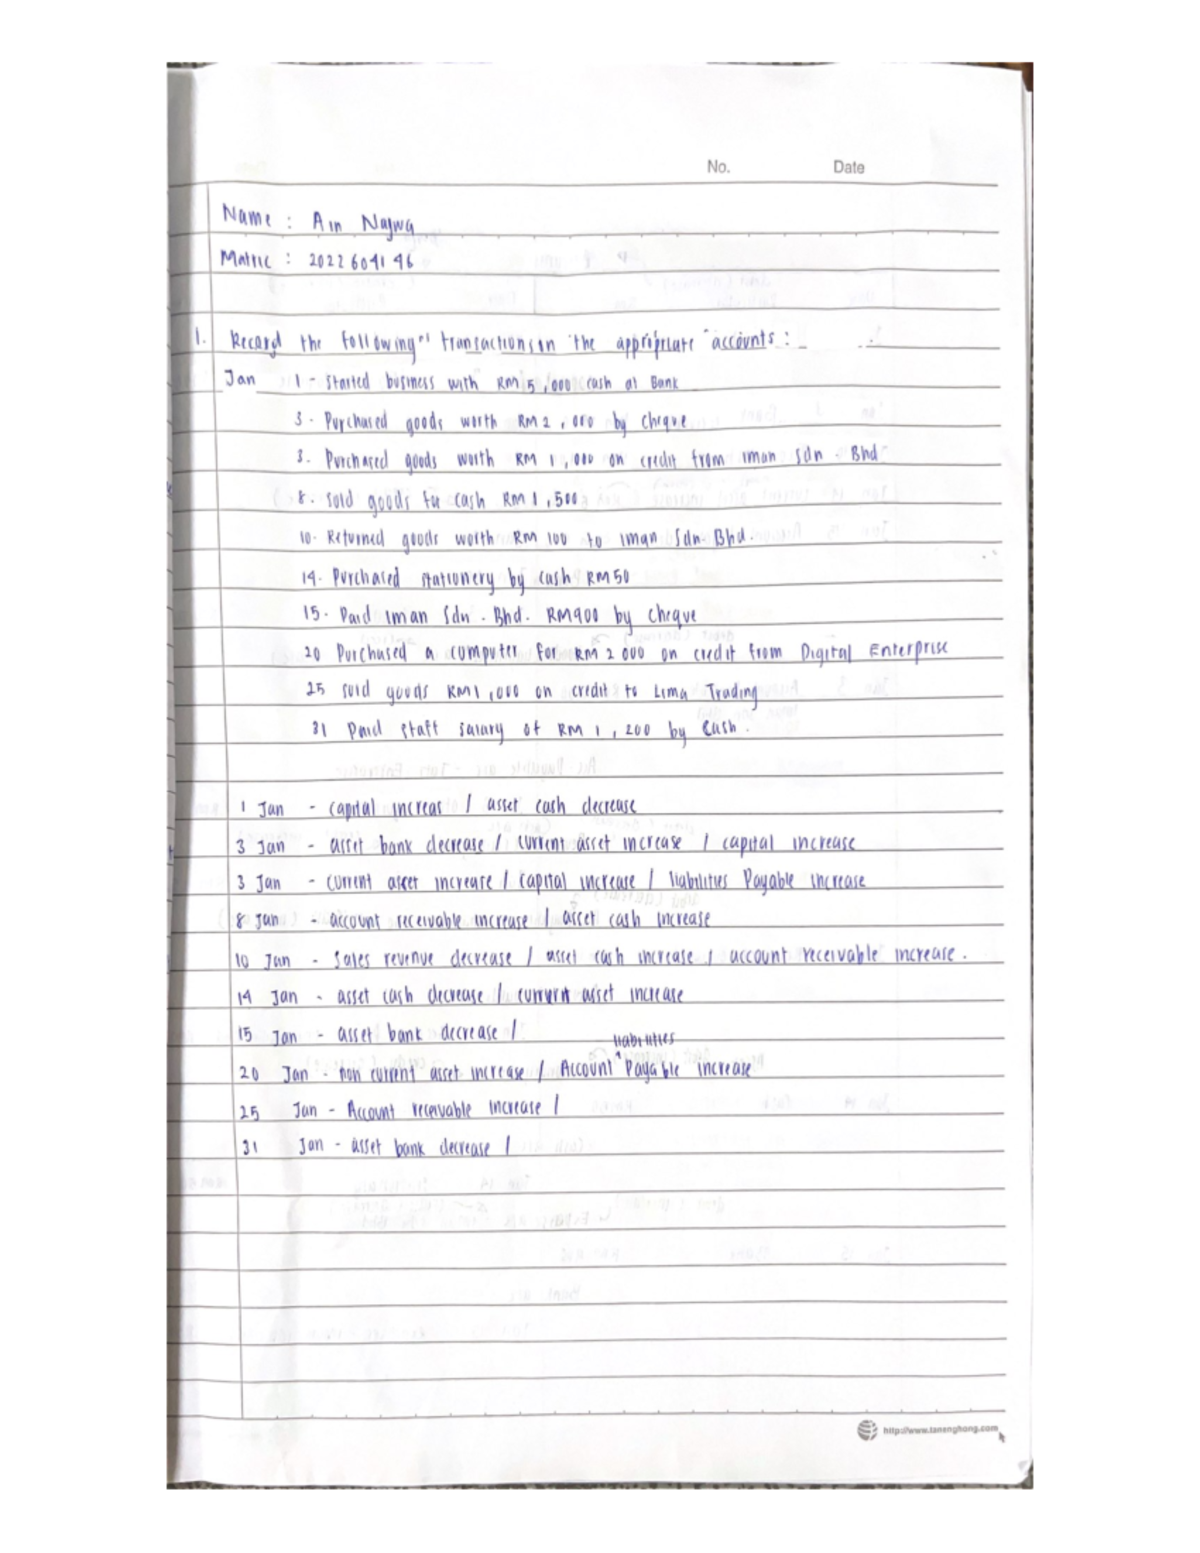 No. Date
Name : Ain Najwa
Matric : 2022604146
1. Record the following transactions in the appropriate accounts :
Jan 1 - Started business with RM 5,000 cash at Bank
3 - Purchased goods worth RM 2,000 by cheque
3. Purchased goods worth RM 1,000 on credit from Iman Sdn. Bhd
8. Sold goods for cash RM 1,500
10. Returned goods worth RM 100 to Iman Sdn. Bhd.
14. Purchased stationery by cash RM50
15. Paid Iman Sdn. Bhd. RM900 by cheque
20 Purchased a computer for RM 2 000 on credit from Digital Enterprise
25 sold goods RM1,000 on credit to Lima Trading
31 Paid staff salary of RM 1,200 by cash.
1 Jan - capital increas / asset cash decrease
3 Jan - asset bank decrease / current asset increase / capital increase
3 Jan - current asset increase / capital increase / liabilities Payable increase
8 Jan - account receivable increase / asset cash increase
10 Jan - Sales revenue decrease / asset cash increase / account receivable increase.
14 Jan - asset cash decrease / current asset increase
15 Jan - asset bank decrease /
liabilities
20 Jan - non current asset increase / Account Payable increase
25 Jan - Account receivable increase /
31 Jan - asset bank decrease /
http://www.tanenghong.com